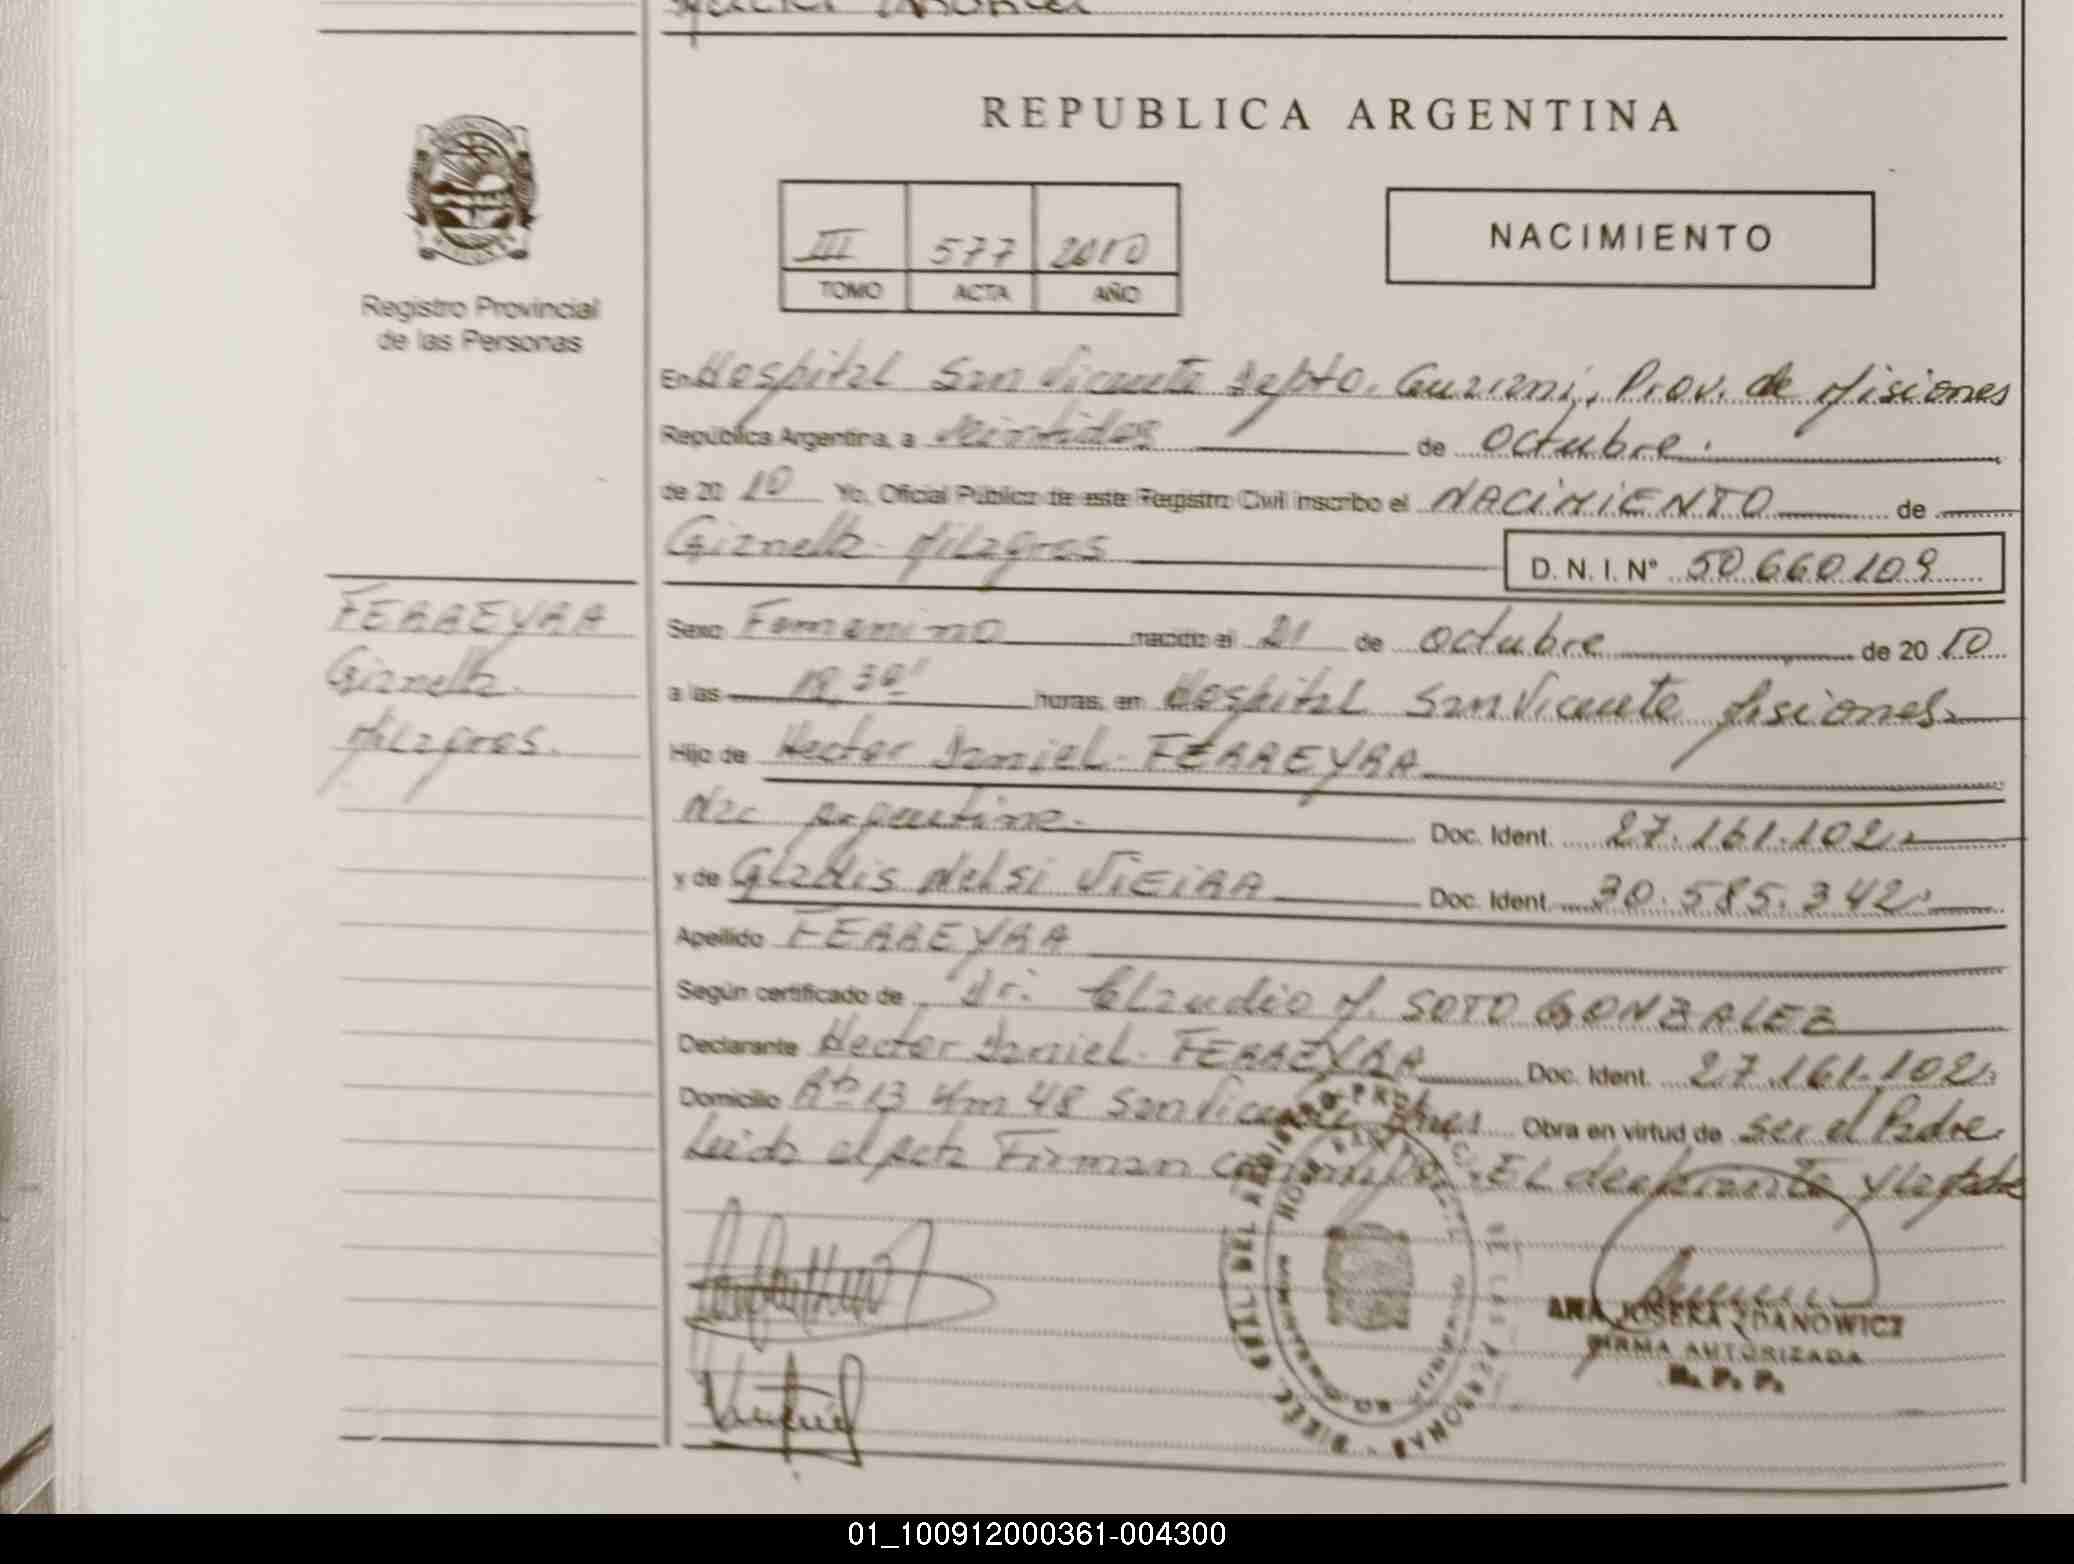 REPUBLICA ARGENTINA
III 577 2010
TOMO ACTA AÑO
NACIMIENTO
Registro Provincial
de las Personas
En Hospital San Vicente Depto. Guarani, Prov. de Misiones
República Argentina, a Veintidos de Octubre.
de 20 10 Yo, Oficial Público de este Registro Civil inscribo el NACIMIENTO de
Gianella Milagros
D. N. I. Nº 50.660.109
FERREYRA
Gianella
Milagros.
Sexo Femenino nacido el 21 de Octubre de 20 10
a las 18,30 horas, en Hospital San Vicente Misiones
Hijo de Hector Daniel FERREYRA
Nac Argentina. Doc. Ident. 27.161.102
y de Gladis Nelsi VIEIRA Doc. Ident. 30.585.342
Apellido FERREYRA
Según certificado de Dr. Claudio M. SOTO GONZALEZ
Declarante Hector Daniel FERREYRA Doc. Ident. 27.161.102
Domicilio Rta 13 Km 48 San Vicente Mnes Obra en virtud de ser el Padre
Leida el Acta Firman conmigo, EL declarante y la Madre
ANA JOSEFA ZDANOWICZ
FIRMA AUTORIZADA
R. P. P.
01_100912000361-004300